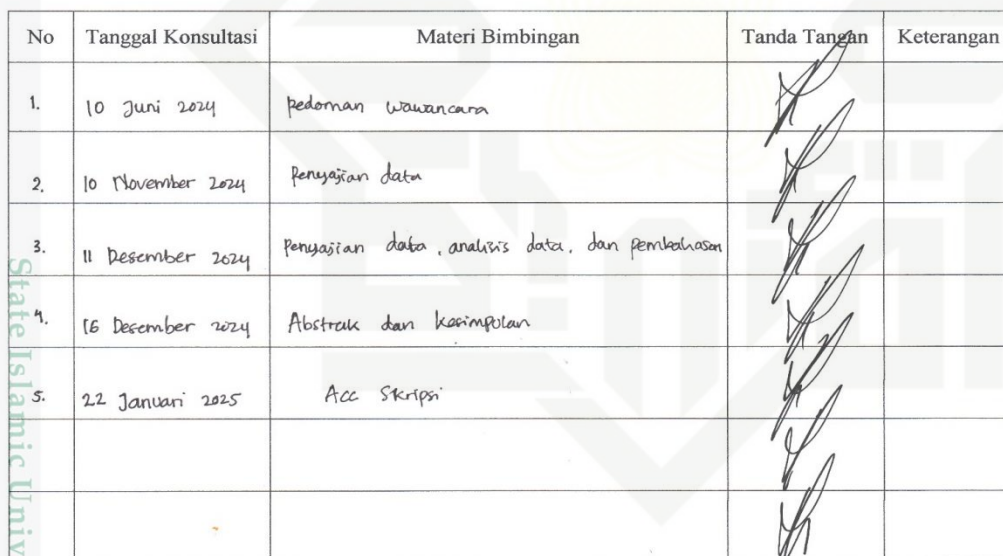 No Tanggal Konsultasi Materi Bimbingan Tanda Tangan Keterangan
1. 10 Juni 2024 Pedoman wawancara
2. 10 November 2024 Penyajian data
3. 11 Desember 2024 Penyajian data, analisis data, dan pembahasan
4. 16 Desember 2024 Abstrak dan kesimpulan
5. 22 Januari 2025 Acc Skripsi
State Islamic Univ